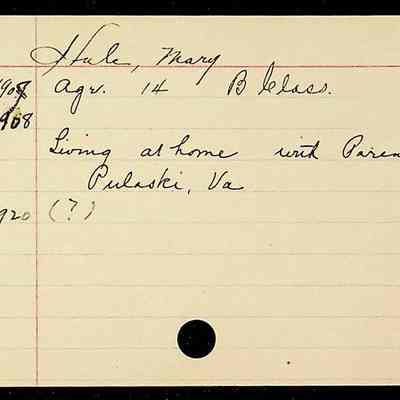 Hale, Mary
1908 Age. 14 B Class.
1908
Living at home with Paren
Pulaski, Va
920 (?)